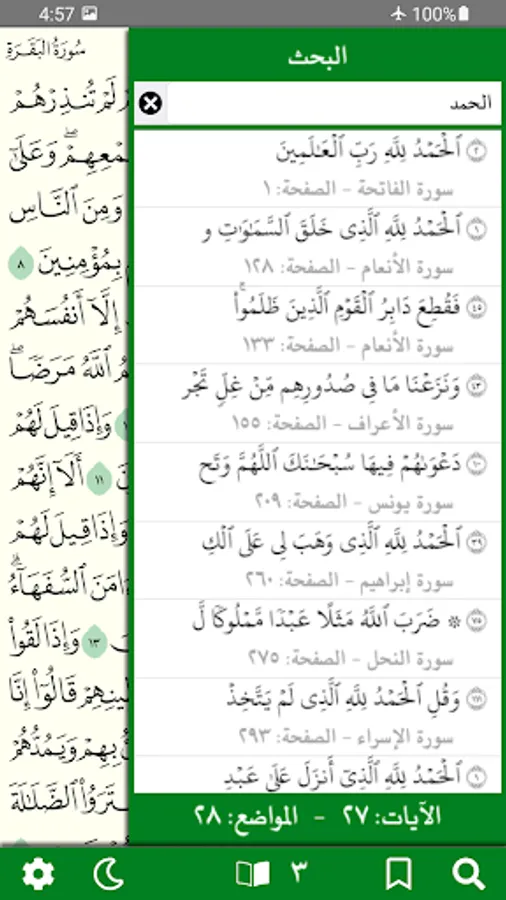 4:57
100%
سُورَةُ البَقَرَةِ
البحث
الحمد
ٱلۡحَمۡدُ لِلَّهِ رَبِّ ٱلۡعَٰلَمِينَ ٢
سورة الفاتحة - الصفحة: ١
ٱلۡحَمۡدُ لِلَّهِ ٱلَّذِي خَلَقَ ٱلسَّمَٰوَٰتِ و ١
سورة الأنعام - الصفحة: ١٢٨
فَقُطِعَ دَابِرُ ٱلۡقَوۡمِ ٱلَّذِينَ ظَلَمُواْۚ ٤٥
سورة الأنعام - الصفحة: ١٣٣
وَنَزَعۡنَا مَا فِي صُدُورِهِم مِّنۡ غِلّٖ تَجۡر ٤٣
سورة الأعراف - الصفحة: ١٥٥
دَعۡوَىٰهُمۡ فِيهَا سُبۡحَٰنَكَ ٱللَّهُمَّ وَتَح ١٠
سورة يونس - الصفحة: ٢٠٩
ٱلۡحَمۡدُ لِلَّهِ ٱلَّذِي وَهَبَ لِي عَلَى ٱلۡكِ ٣٩
سورة إبراهيم - الصفحة: ٢٦٠
۞ ضَرَبَ ٱللَّهُ مَثَلًا عَبۡدٗا مَّمۡلُوكٗا لَّ ٧٥
سورة النحل - الصفحة: ٢٧٥
وَقُلِ ٱلۡحَمۡدُ لِلَّهِ ٱلَّذِي لَمۡ يَتَّخِذۡ ١١١
سورة الإسراء - الصفحة: ٢٩٣
ٱلۡحَمۡدُ لِلَّهِ ٱلَّذِيٓ أَنزَلَ عَلَىٰ عَبۡدِ ١
الآيات: ٢٧ - المواضع: ٢٨
لَمۡ تُنذِرۡهُمۡ
وَعَلَىٰٓ
وَمِنَ ٱلنَّاسِ
بِمُؤۡمِنِينَ ٨
إِلَّآ أَنفُسَهُمۡ
ٱللَّهُ مَرَضٗاۖ
وَإِذَا قِيلَ لَهُمۡ
١١ أَلَآ إِنَّهُمۡ
وَإِذَا قِيلَ لَهُمۡ
ءَامَنَ ٱلسُّفَهَآءُۗ
١٣ وَإِذَا لَقُواْ
قَالُوٓاْ إِنَّا
بِهِمۡ وَيَمُدُّهُمۡ
ٱلضَّلَٰلَةَ
٣